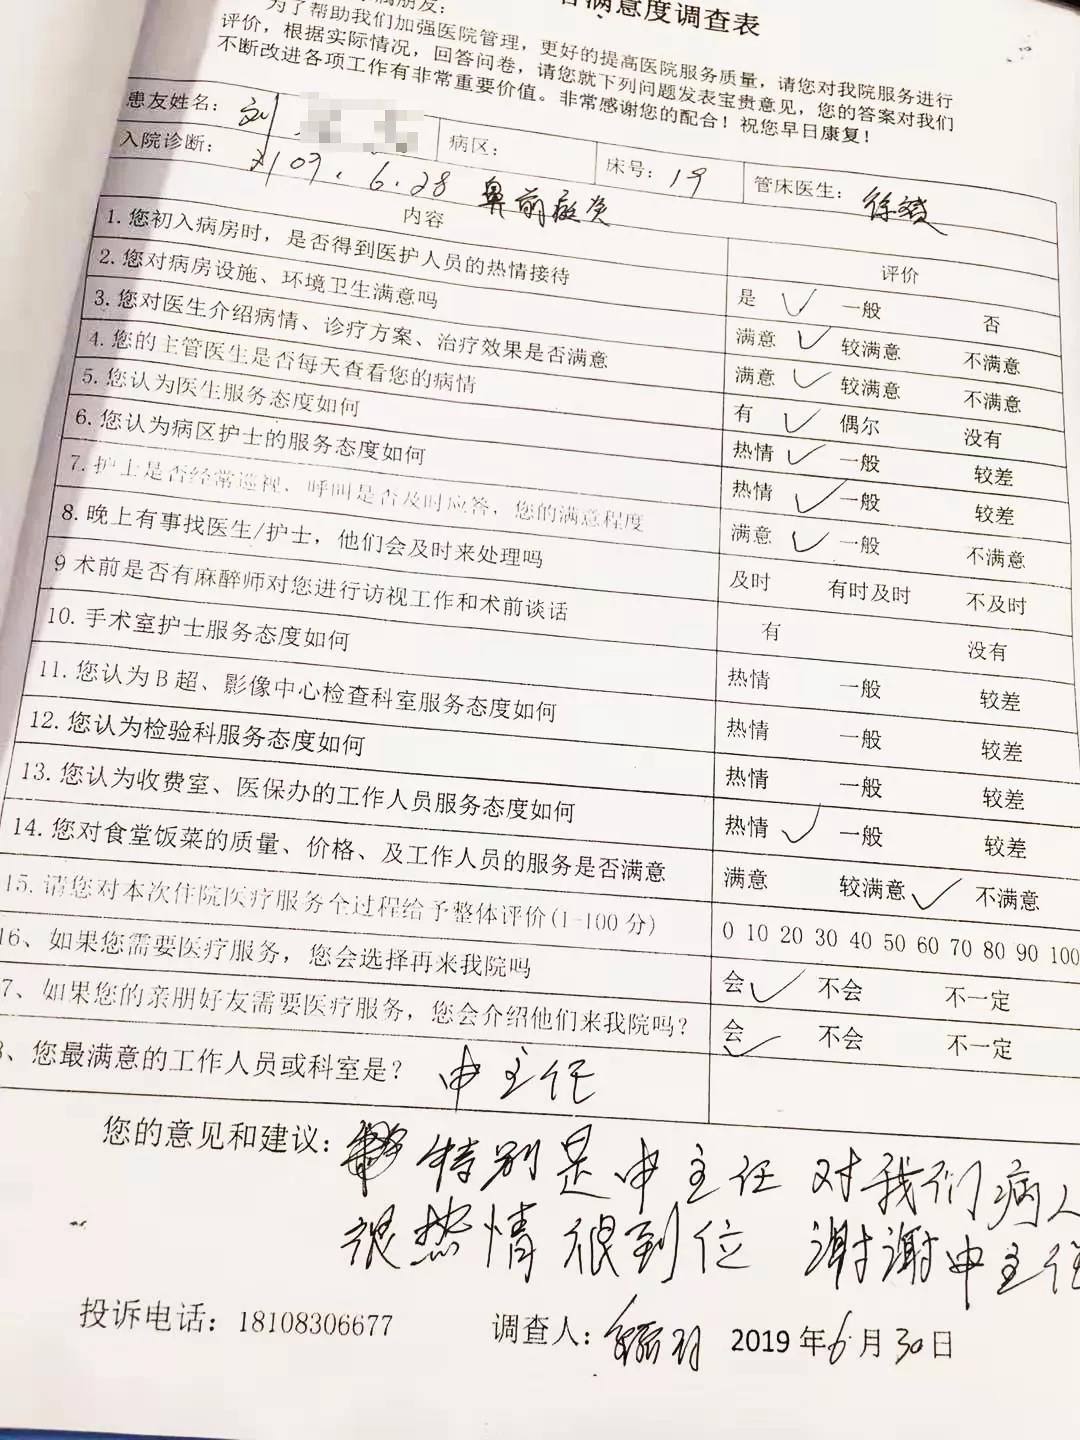 满意度调查表
朋友：
为了帮助我们加强医院管理，更好的提高医院服务质量，请您对我院服务进行
评价，根据实际情况，回答问卷，请您就下列问题发表宝贵意见，您的答案对我们
不断改进各项工作有非常重要价值。非常感谢您的配合！祝您早日康复！
患友姓名： 刘 病区： 床号：19 管床医生：徐
入院诊断： 109.6.28 鼻前庭炎
内容 评价
1.您初入病房时，是否得到医护人员的热情接待 是 ✓ 一般 否
2.您对病房设施、环境卫生满意吗 满意 ✓ 较满意 不满意
3.您对医生介绍病情、诊疗方案、治疗效果是否满意 满意 ✓ 较满意 不满意
4.您的主管医生是否每天查看您的病情 有 ✓ 偶尔 没有
5.您认为医生服务态度如何 热情 ✓ 一般 较差
6.您认为病区护士的服务态度如何 热情 ✓ 一般 较差
7.护士是否经常巡视，呼叫是否及时应答，您的满意程度 满意 ✓ 一般 不满意
8.晚上有事找医生/护士，他们会及时来处理吗 及时 有时及时 不及时
9术前是否有麻醉师对您进行访视工作和术前谈话 有 没有
10.手术室护士服务态度如何 热情 一般 较差
11.您认为B超、影像中心检查科室服务态度如何 热情 一般 较差
12.您认为检验科服务态度如何 热情 一般 较差
13.您认为收费室、医保办的工作人员服务态度如何 热情 ✓ 一般 较差
14.您对食堂饭菜的质量、价格、及工作人员的服务是否满意 满意 较满意 ✓ 不满意
15.请您对本次住院医疗服务全过程给予整体评价(1-100分) 0 10 20 30 40 50 60 70 80 90 100
16、如果您需要医疗服务，您会选择再来我院吗 会 ✓ 不会 不一定
7、如果您的亲朋好友需要医疗服务，您会介绍他们来我院吗？ 会 ✓ 不会 不一定
、您最满意的工作人员或科室是？ 申主任
您的意见和建议： 特别是申主任 对我们病人
很热情 很到位 谢谢申主任
投诉电话：18108306677 调查人： 2019年6月30日